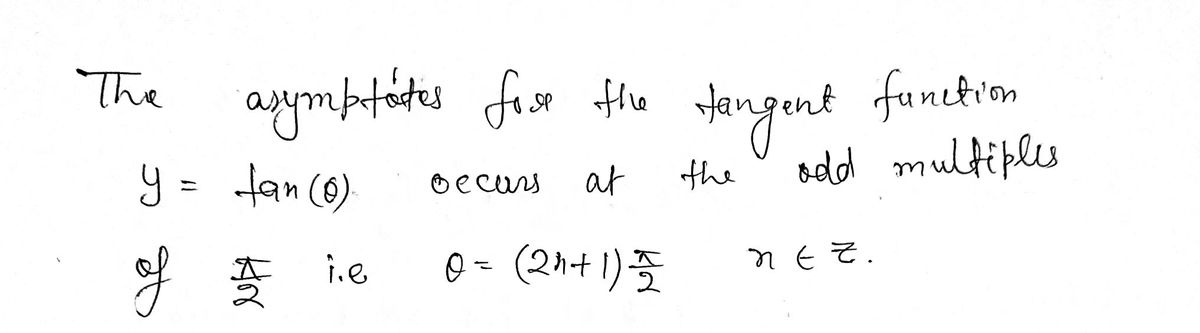 The asymptotes for the tangent function
y = tan(θ) occurs at the odd multiples
of π/2 i.e θ = (2n+1)π/2 n ∈ Z.